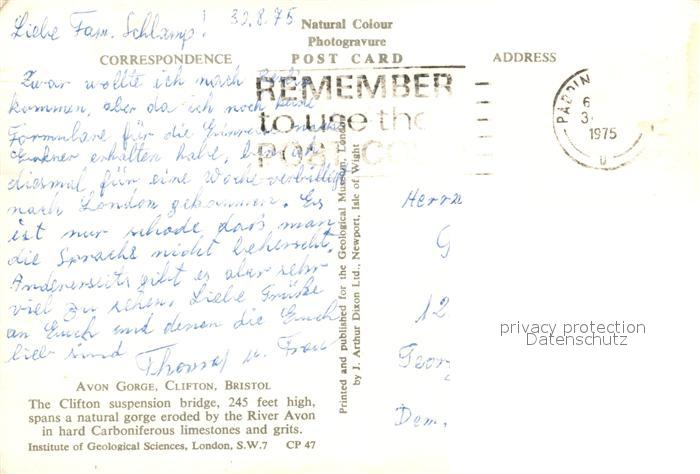 Liebe Fam. Schlamp! 30.8.75
Natural Colour
Photogravure
CORRESPONDENCE POST CARD ADDRESS
Zwar wollte ich nach Berlin
kommen, aber da ich noch keine
Formulare für die
erhalten habe,
diesmal für eine Woche
nach London gekommen. Es
ist nur schade daß man
die Sprache nicht beherrscht.
Andererseits gibt es aber sehr
viel zu sehen. Liebe Grüße
an Euch und denen die Euch
lieb sind Thomas u. Frau
REMEMBER
to use the
POSTCO
PADDIN
6
3
1975
Herrn
G
12
Geor
Dem.
Printed and published for the Geological Museum, London
by J. Arthur Dixon Ltd., Newport, Isle of Wight
privacy protection
Datenschutz
AVON GORGE, CLIFTON, BRISTOL
The Clifton suspension bridge, 245 feet high,
spans a natural gorge eroded by the River Avon
in hard Carboniferous limestones and grits.
Institute of Geological Sciences, London, S.W.7 CP 47